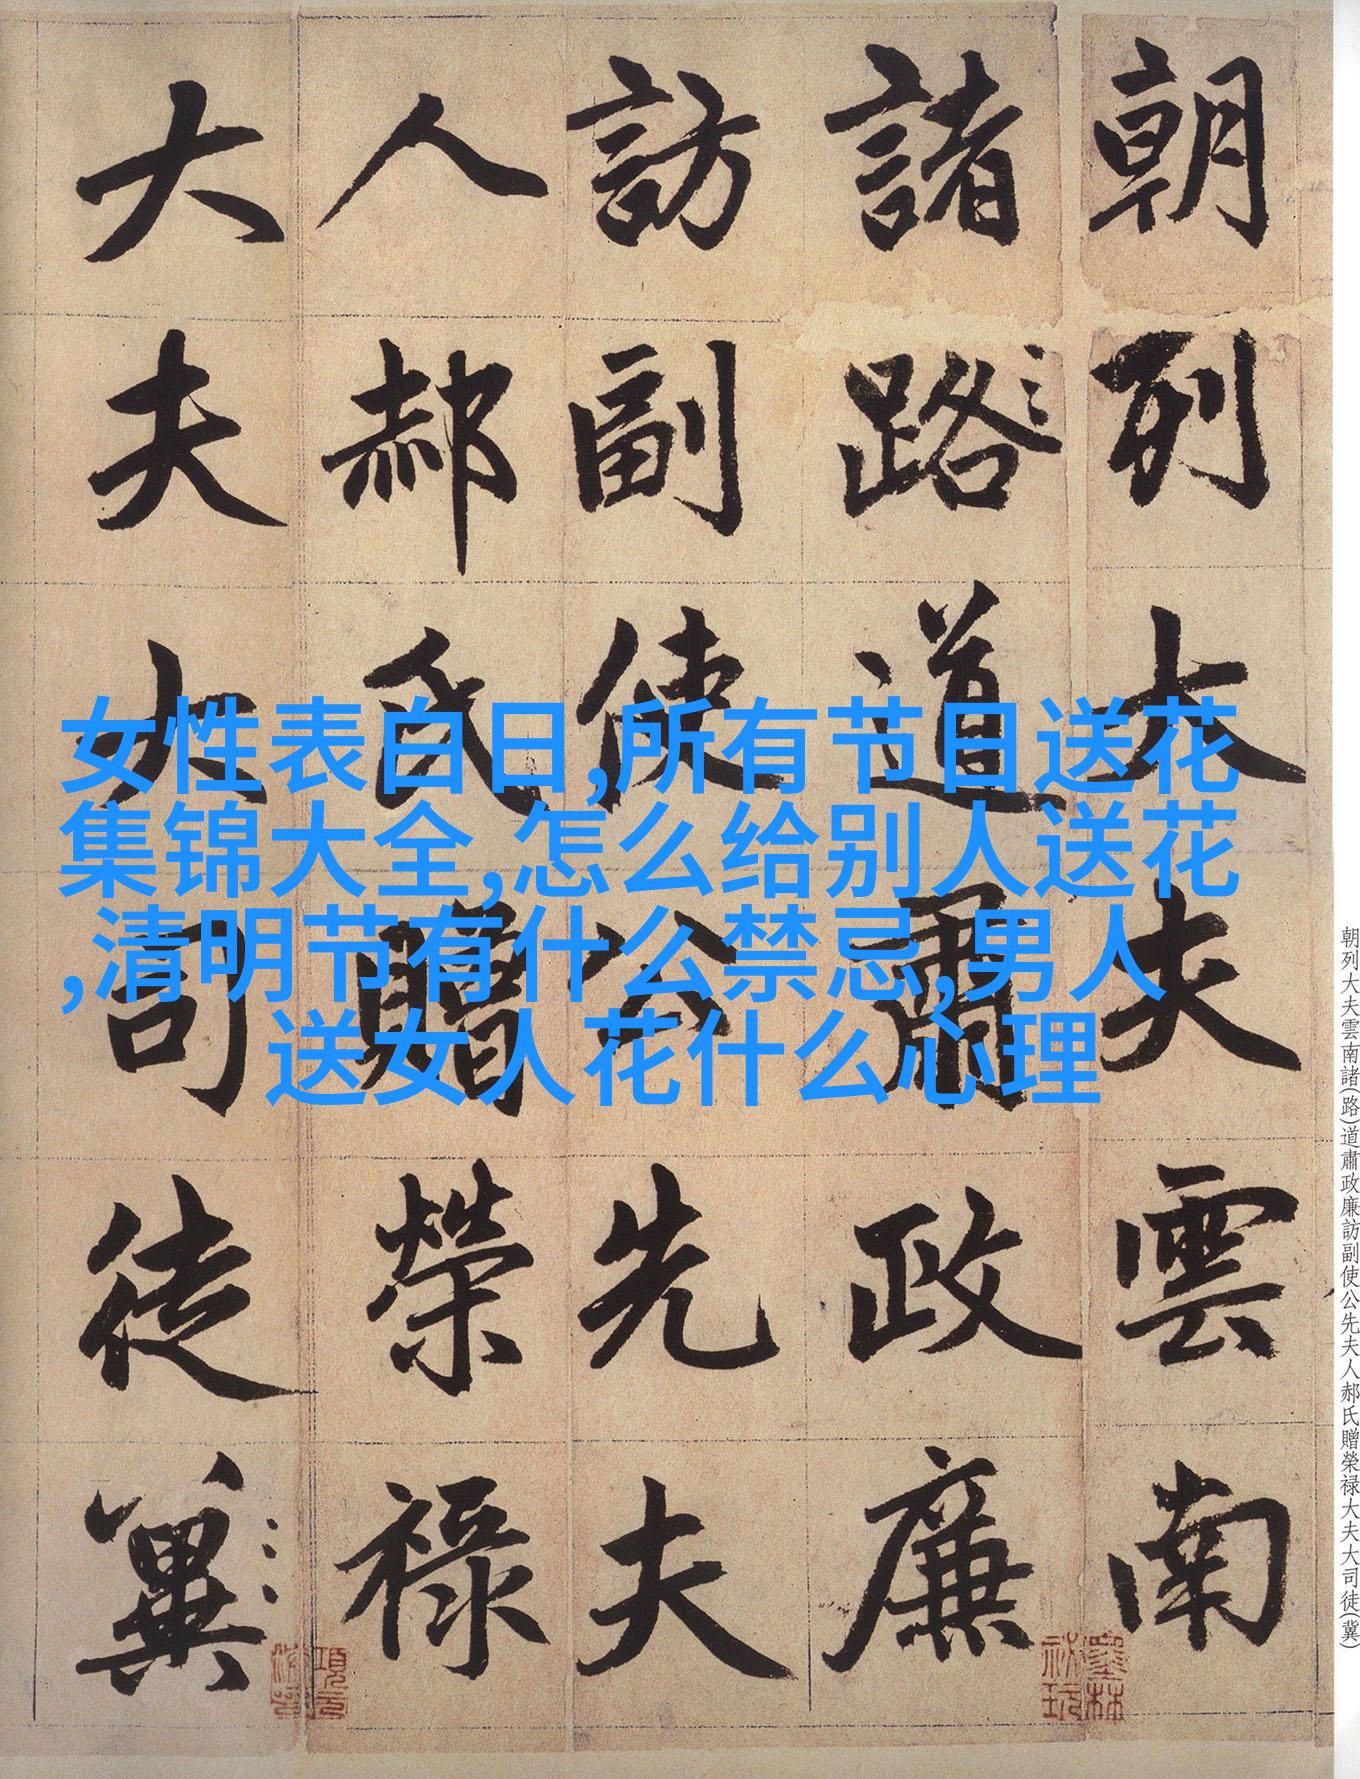 朝列大夫雲南
諸路道肅政廉
訪副使公先夫
人郝氏贈榮禄
大夫大司徒冀
女性表白日,所有节日送花
集锦大全,怎么给别人送花
,清明节有什么禁忌,男人
送女人花什么心理
朝列大夫雲南諸(路)道肅政廉訪副使公先夫人郝氏贈榮禄大夫大司徒(冀)